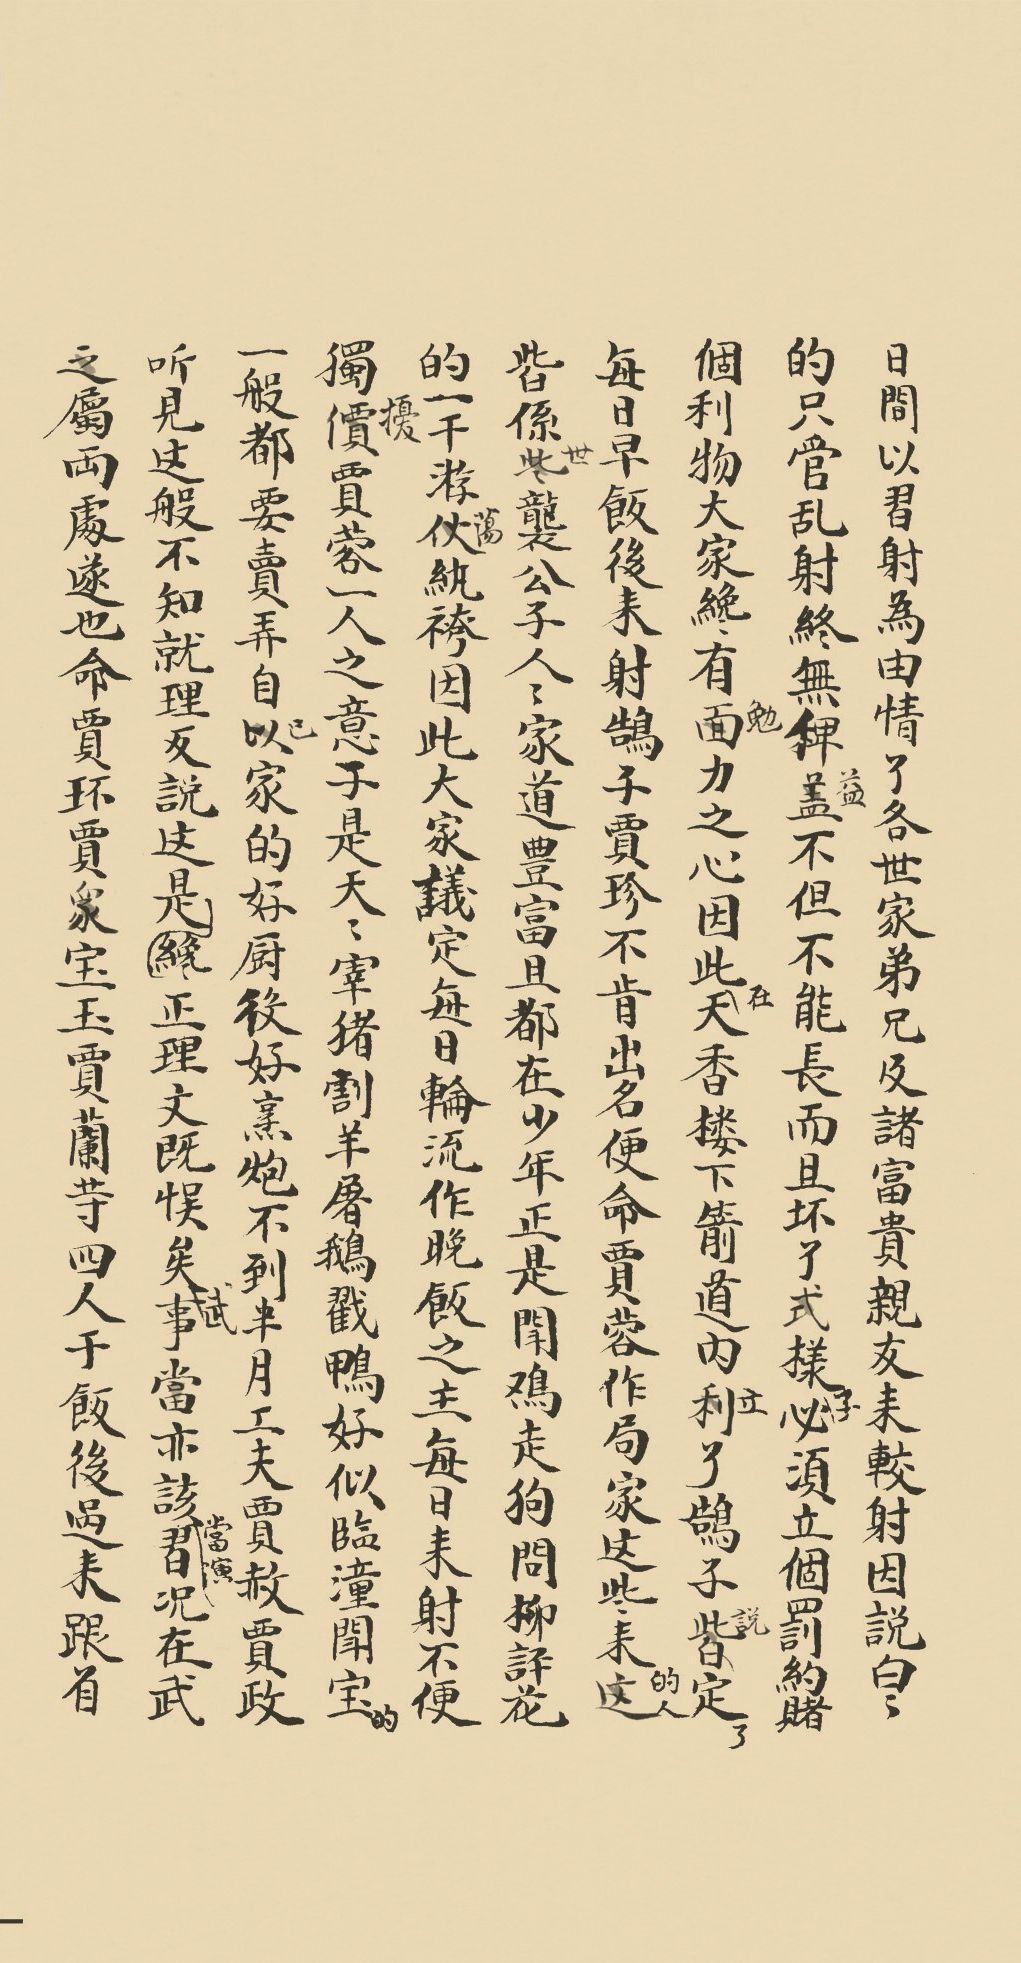 日間以君射為由情了各世家弟兄及諸富貴親友来較射因説白〻
的只管乱射終無稗益盖不但不能長而且坏了式様子必須立個罰約賭
個利物大家纔有勉面力之心因此在天香楼下箭道内立利了鵠子皆説定了
每日早飯後来射鵠子賈珍不肯出名便命賈蓉作局家这些来的人这
皆係世些襲公子人〻家道豊富且都在少年正是閗鸡走狗問柳評花
的一干游蕩伏紈袴因此大家議定每日輪流作晚飯之主每日来射不便
獨擾價賈蓉一人之意于是天〻宰猪割羊屠鵝戳鴨好似臨潼閗宝的
一般都要賣弄自己以家的好厨役好烹炮不到半月工夫賈赦賈政
听見这般不知就理反説这是纔正理文既悞矣武事當亦該當演君况在武
之屬両處遂也命賈环賈衆宝玉賈蘭等四人于飯後過来跟着